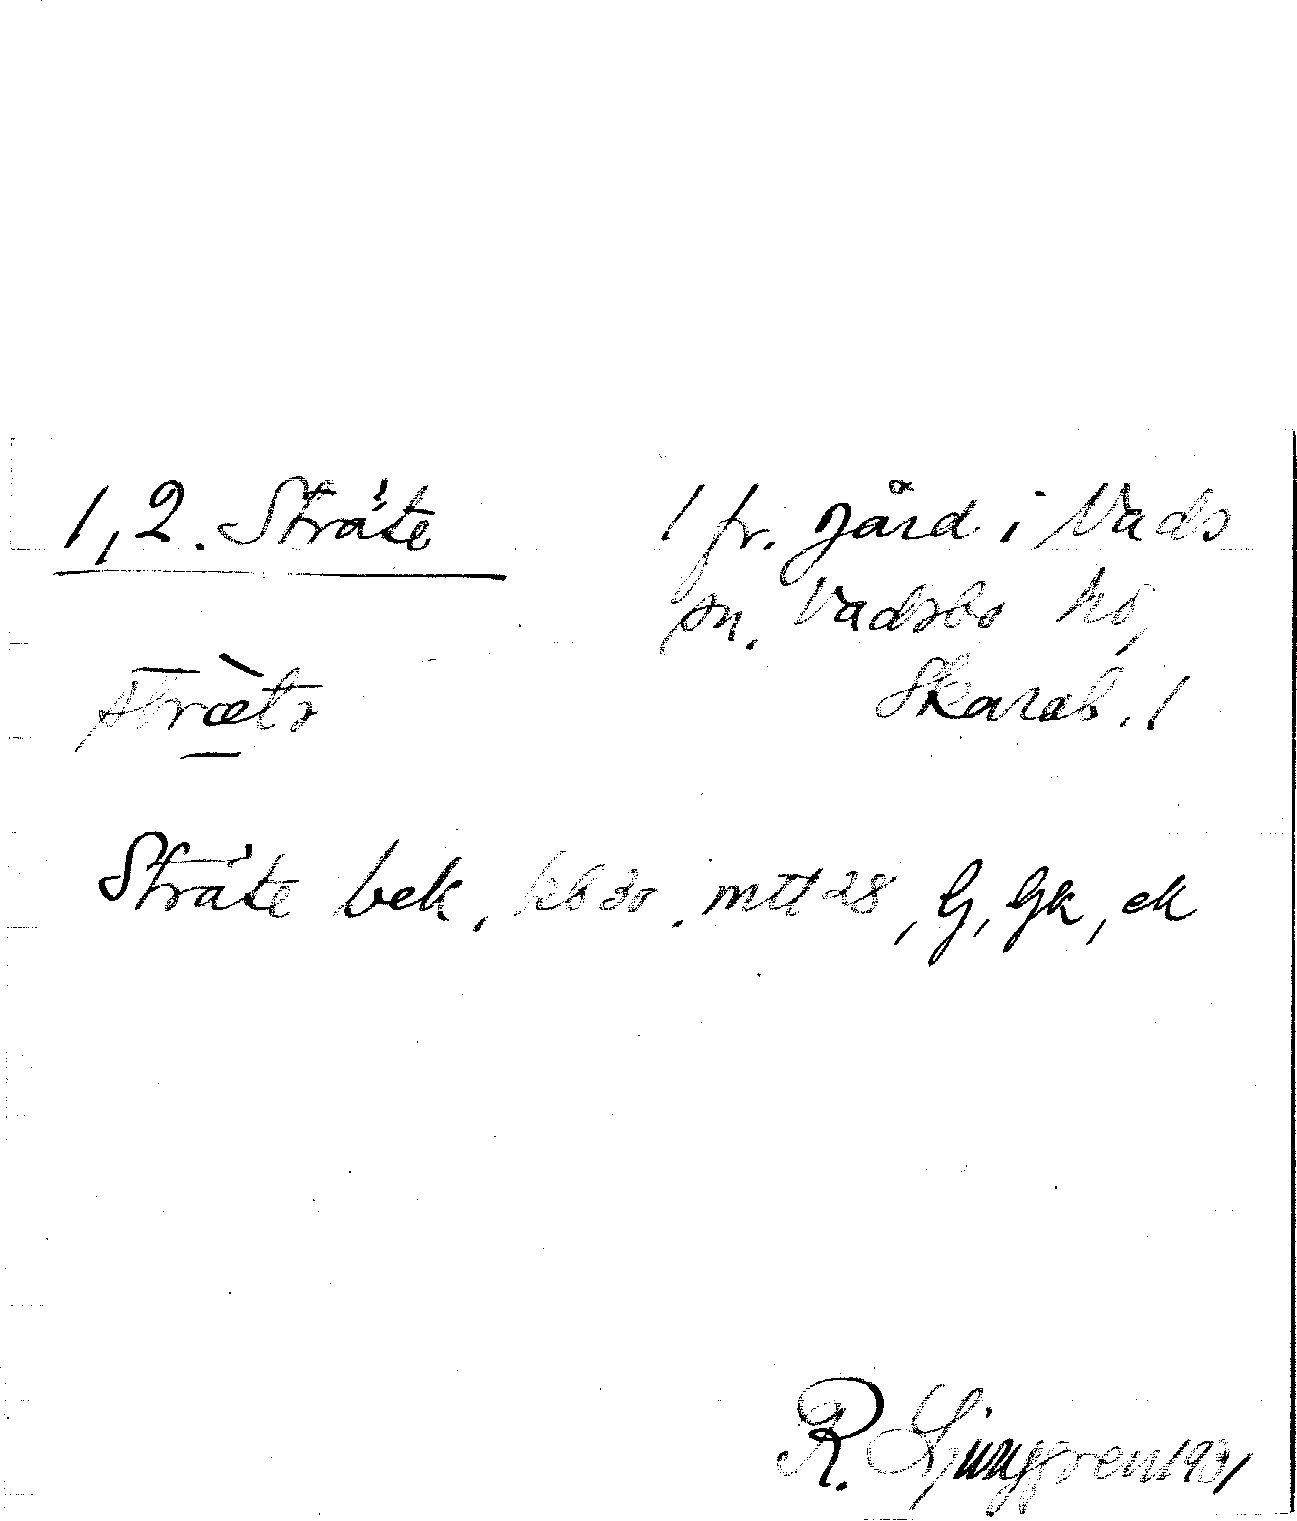 1,2. Sträte
1 fr. gård i Vads
sn. Vadsbo hd,
Skarab. l
stræ̀tə
Sträte bek, kb 30. mtl 28, G, Gk, ek
R. Ljunggren 1931